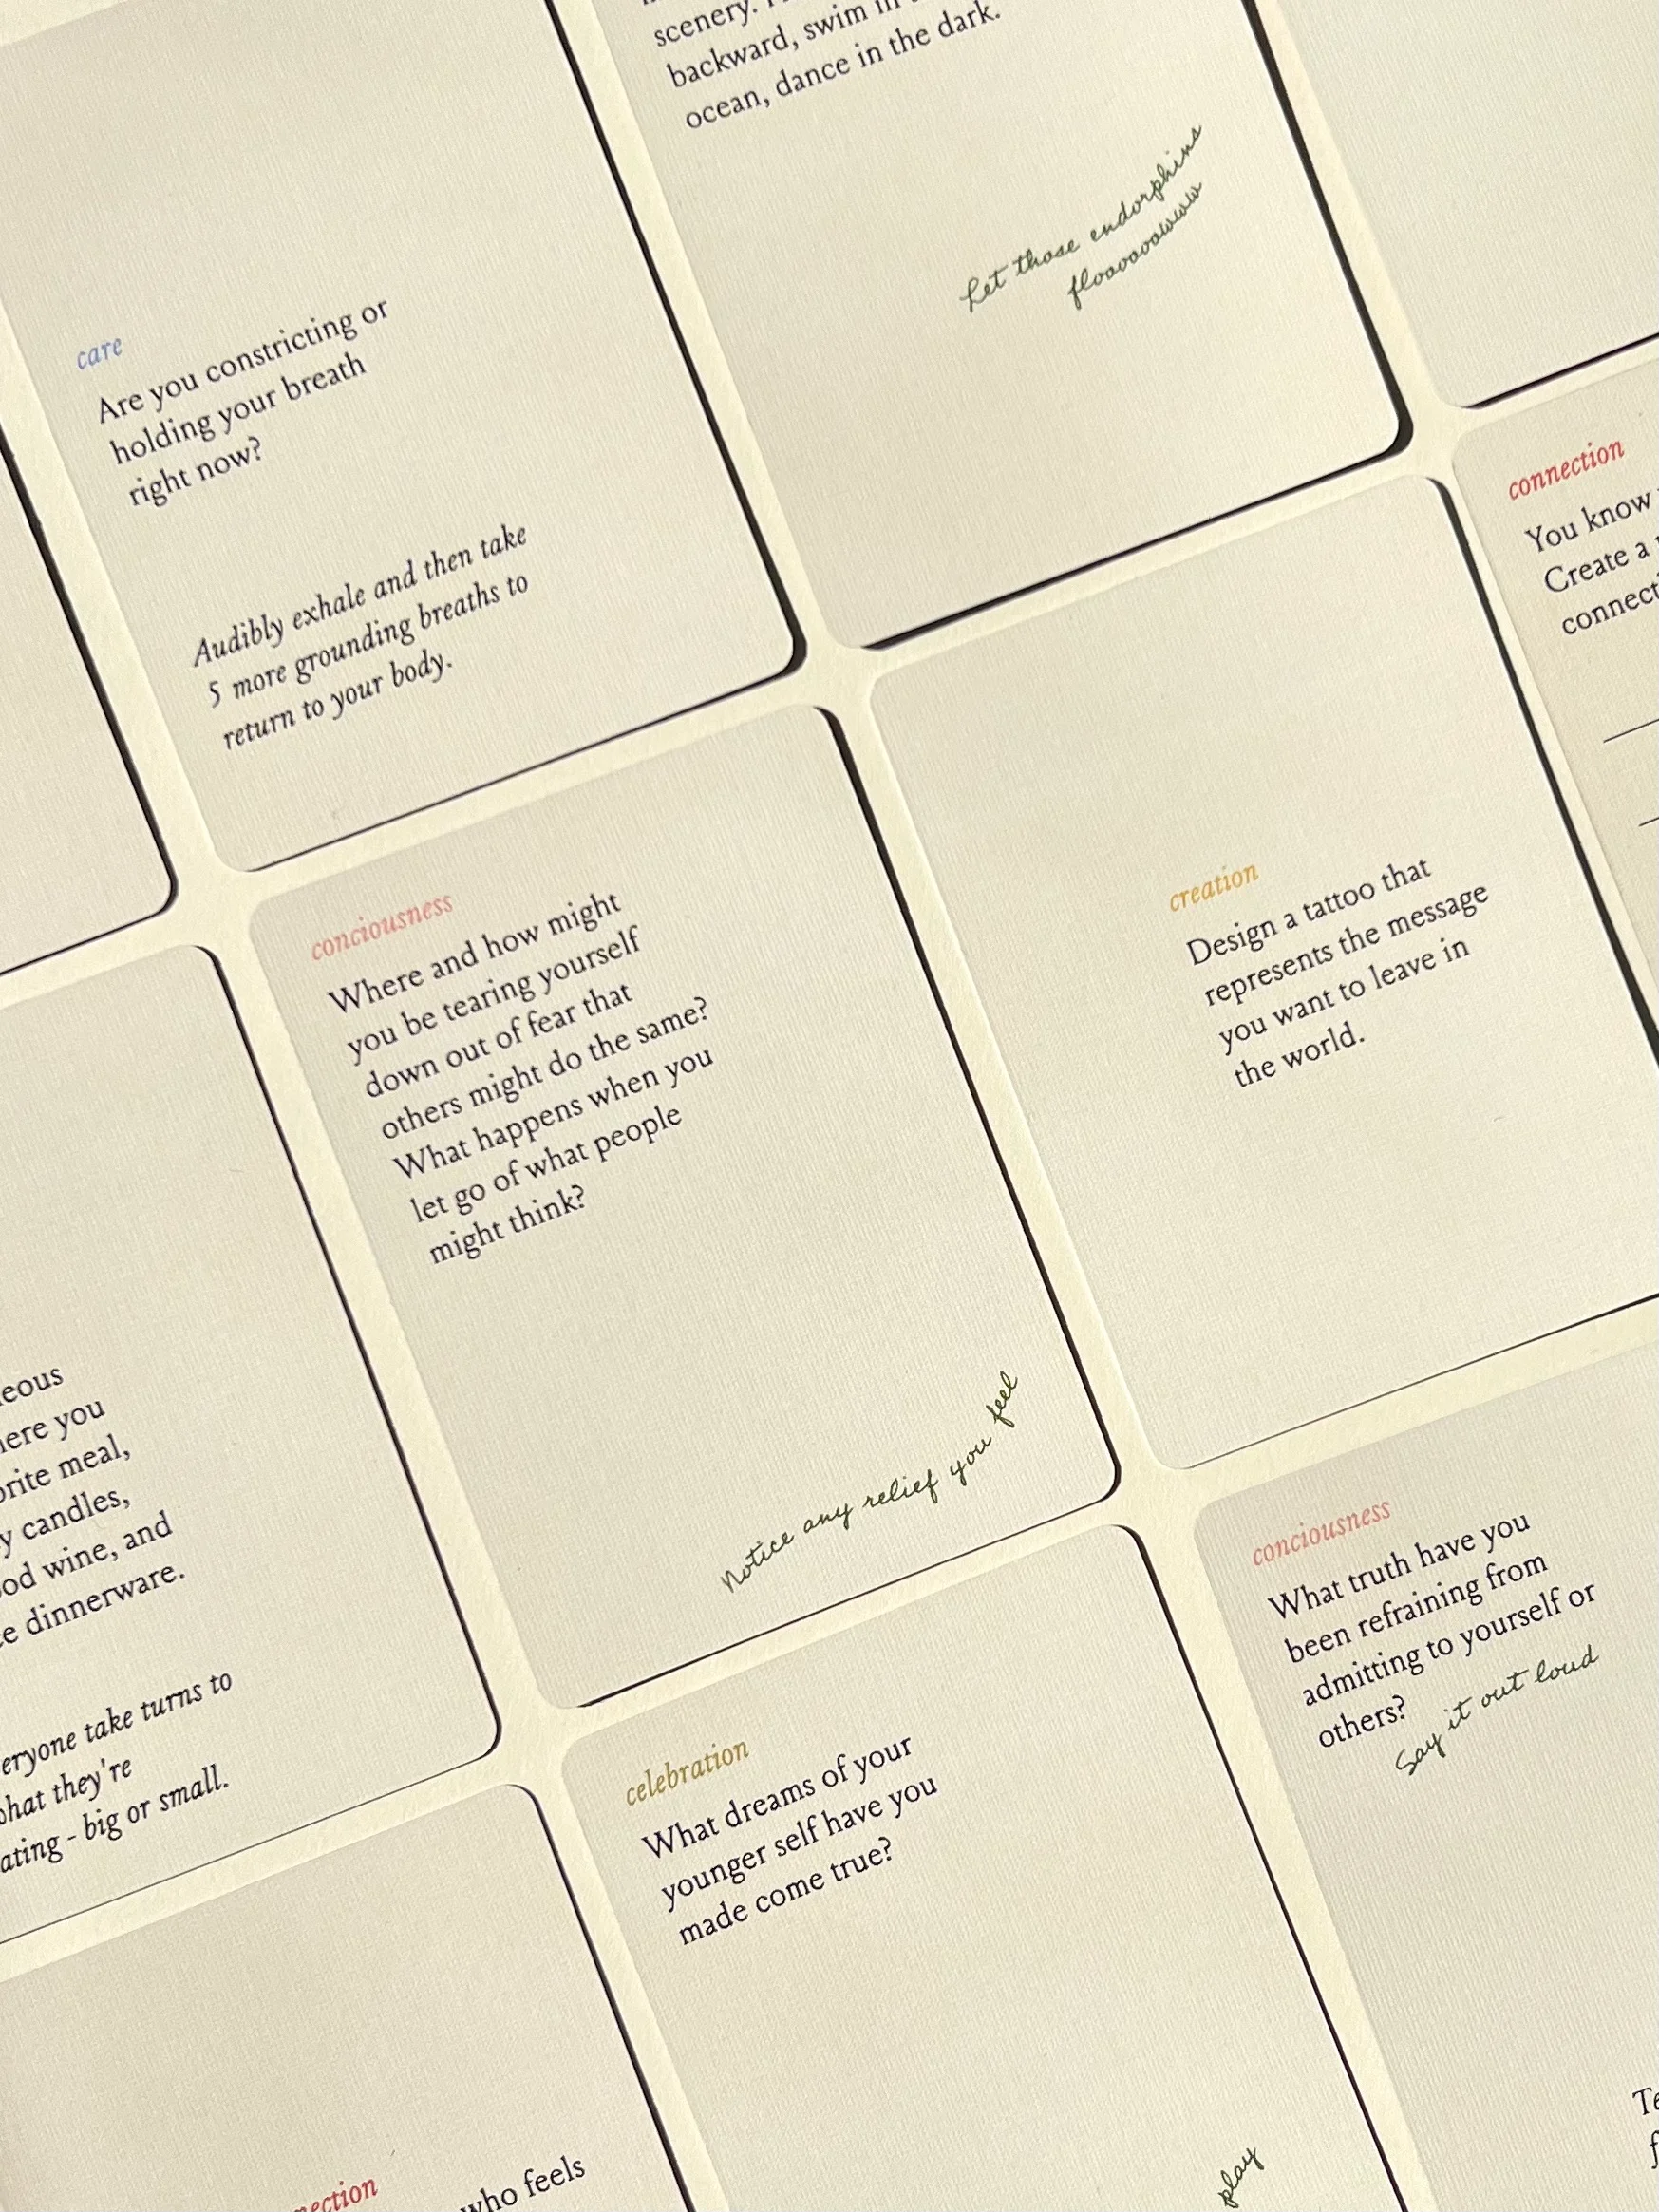 scenery.
backward, swim in
ocean, dance in the dark.
Let those endorphins
flooooowwww
care
Are you constricting or
holding your breath
right now?
Audibly exhale and then take
5 more grounding breaths to
return to your body.
connection
You know
Create a
conciousness
Where and how might
you be tearing yourself
down out of fear that
others might do the same?
What happens when you
let go of what people
might think?
Notice any relief you feel
creation
Design a tattoo that
represents the message
you want to leave in
the world.
you
meal,
candles,
wine, and
dinnerware.
take turns to
they're
- big or small.
celebration
What dreams of your
younger self have you
made come true?
play
conciousness
What truth have you
been refraining from
admitting to yourself or
others?
Say it out loud
who feels